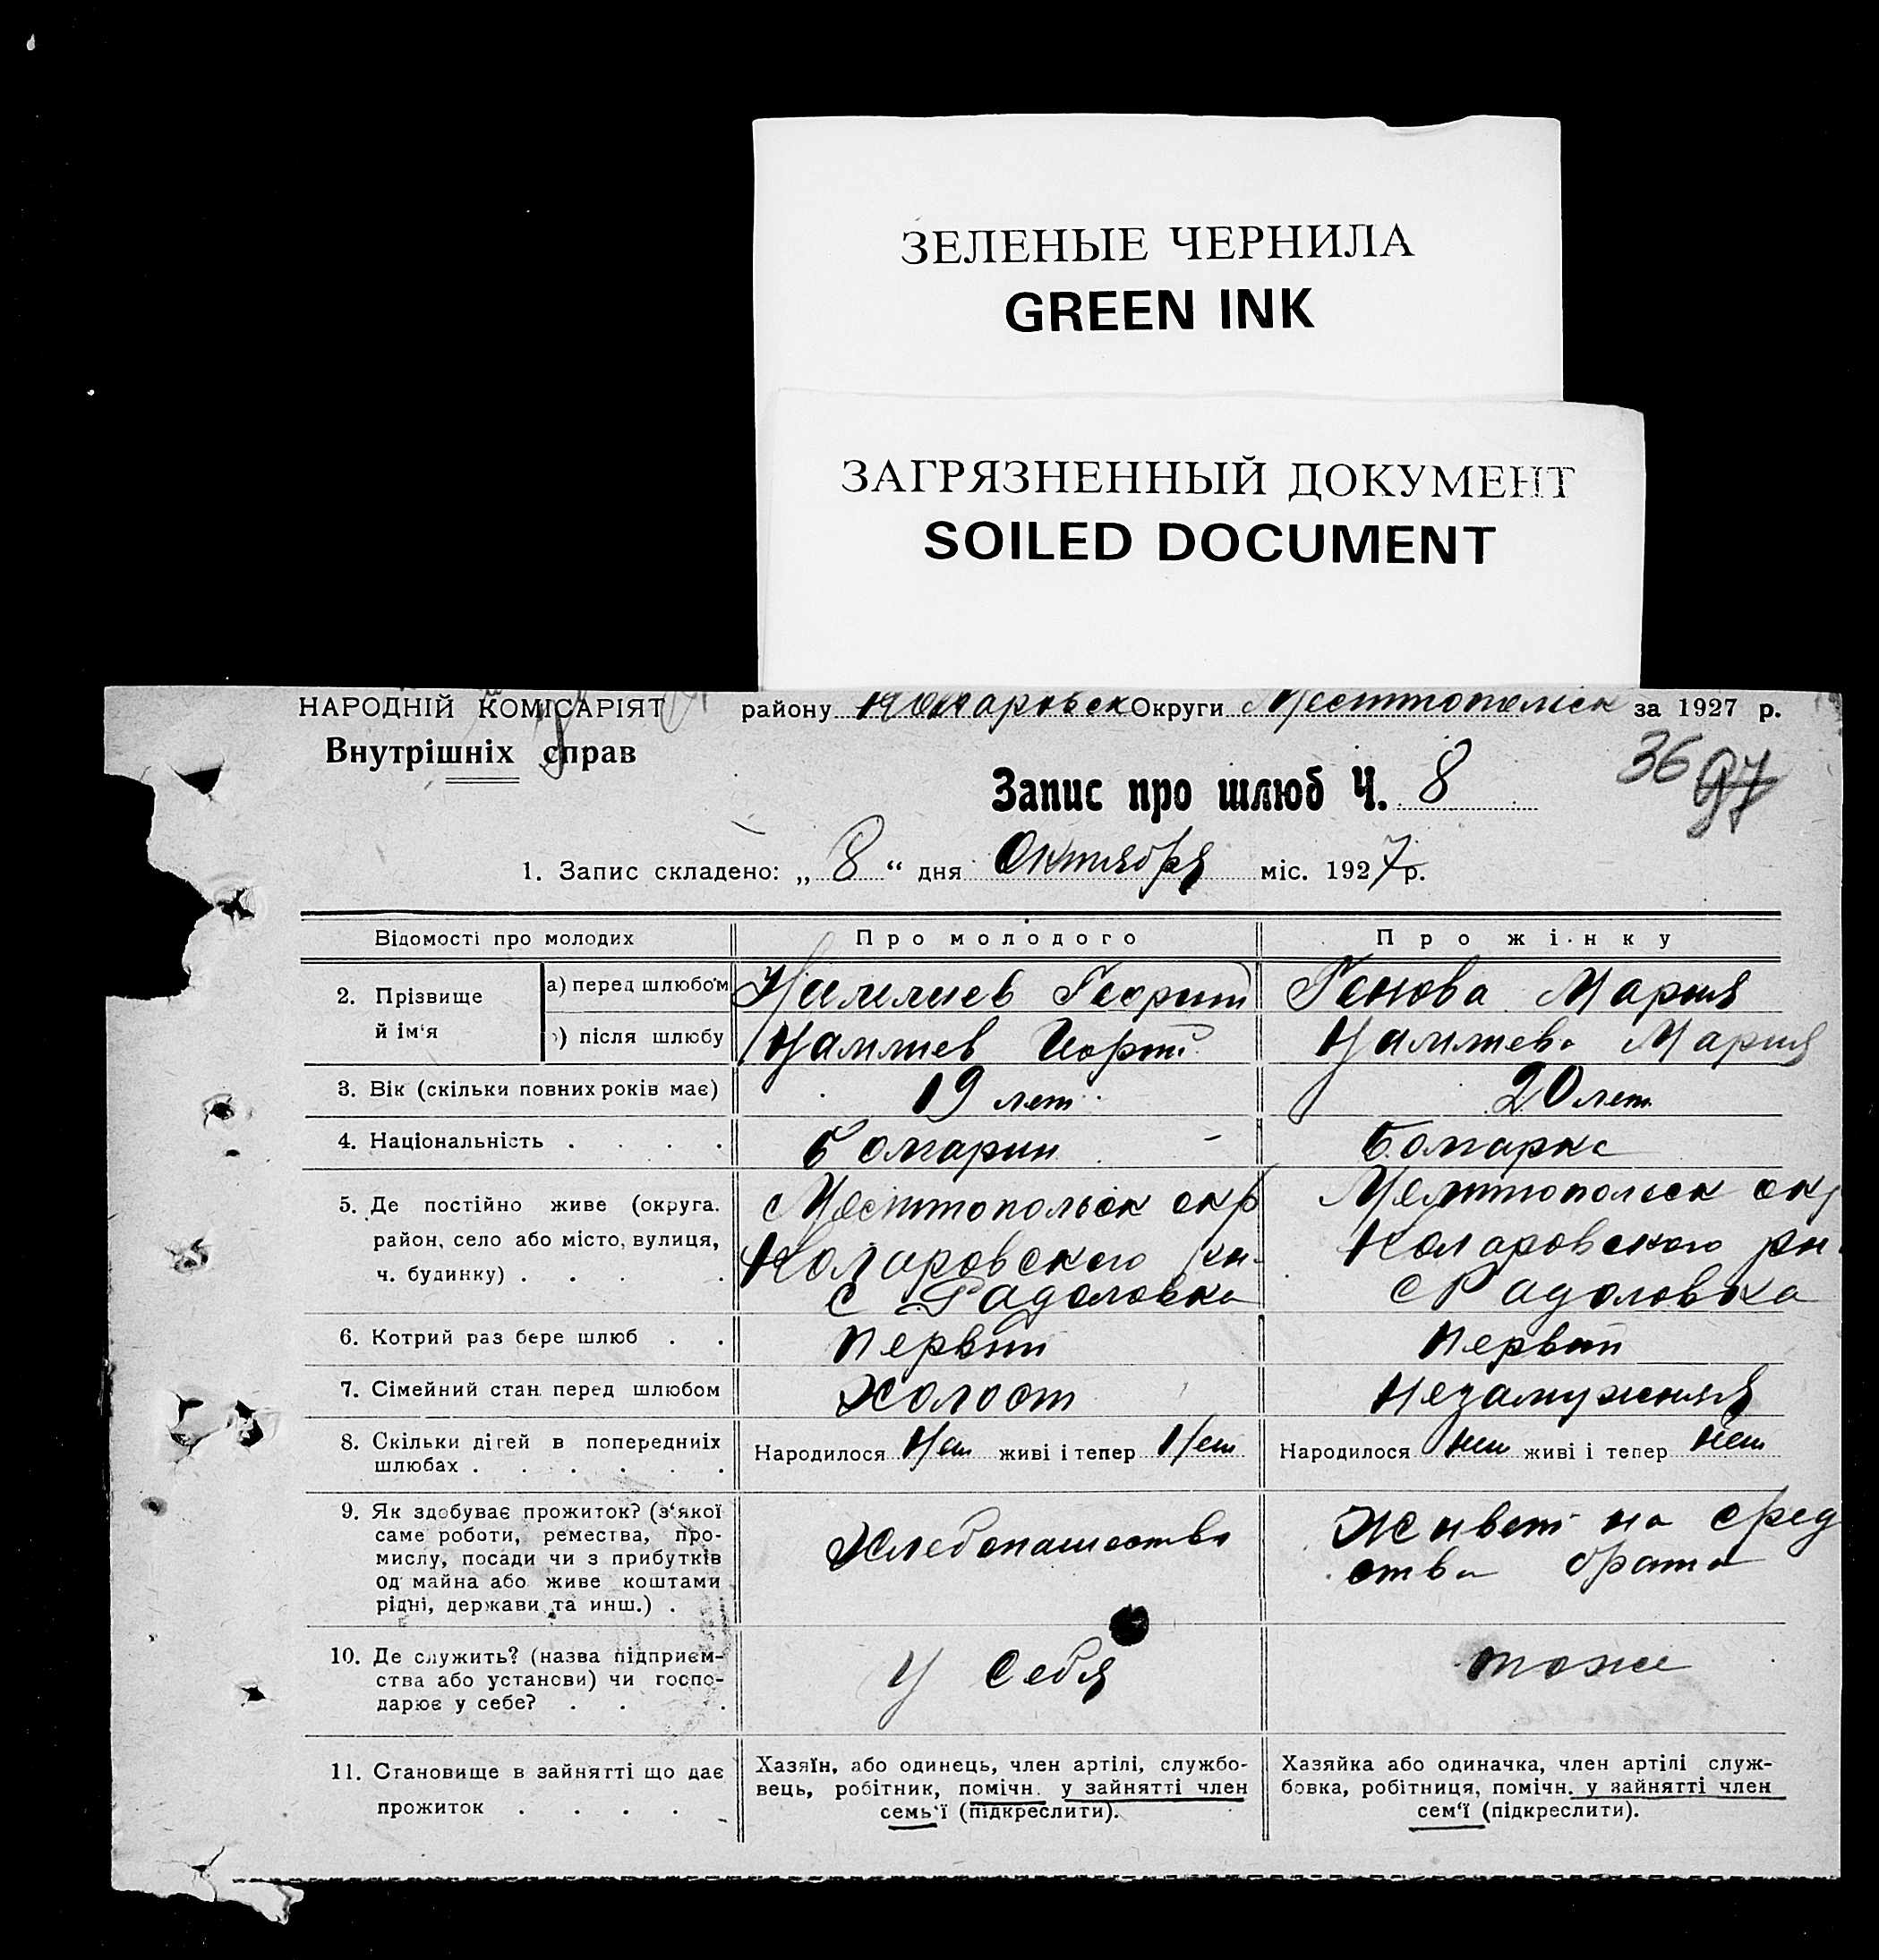 ЗЕЛЕНЫЕ ЧЕРНИЛА
GREEN INK
ЗАГРЯЗНЕННЫЙ ДОКУМЕНТ
SOILED DOCUMENT
НАРОДНІЙ КОМІСАРІЯТ
Внутрішніх справ
району Коларовск Округи Мелитопольск за 1927 р.
36 97
Запис про шлюб Ч. 8
1. Запис складено: „ 8 “ дня Октября міс. 1927 р.
Відомості про молодих
Про молодого
Про жінку
2. Прізвище й ім‘я
а) перед шлюбом
Георгий
Генова Мария
) після шлюбу
Мария
3. Вік (скільки повних років має)
19 лет
20 лет
4. Національність . . . .
Болгарин
Болгарка
5. Де постійно живе (округа.
район, село або місто, вулиця,
ч. будинку) . . . .
Мелитопольск окр
Коларовского рн.
с Радоловка
Мелитопольск окр
Коларовского рн.
с Радоловка
6. Котрий раз бере шлюб . .
Первый
Первый
7. Сімейний стан перед шлюбом
Холост
Незамужняя
8. Скільки дітей в попередниіх
шлюбах . . . . . .
Народилося Нет живі і тепер Нет
Народилося нет живі і тепер нет
9. Як здобуває прожиток? (з‘якої
саме роботи, ремества, про-
мислу, посади чи з прибутків
од майна або живе коштами
рідні, держави та инш.) .
Хлебопашество
Живет на сред
ства брата
10. Де служить? (назва підприєм-
ства або установи) чи госпо-
дарює у себе? . . .
У себя
тоже
11. Становище в зайнятті що дає
прожиток . . . .
Хазяїн, або одинець, член артілі, службо-
вець, робітник, помічн. у зайнятті член
семь‘ї (підкреслити).
Хазяйка або одиначка, член артілі служ-
бовка, робітниця, помічн. у зайнятті член
сем‘ї (підкреслити).